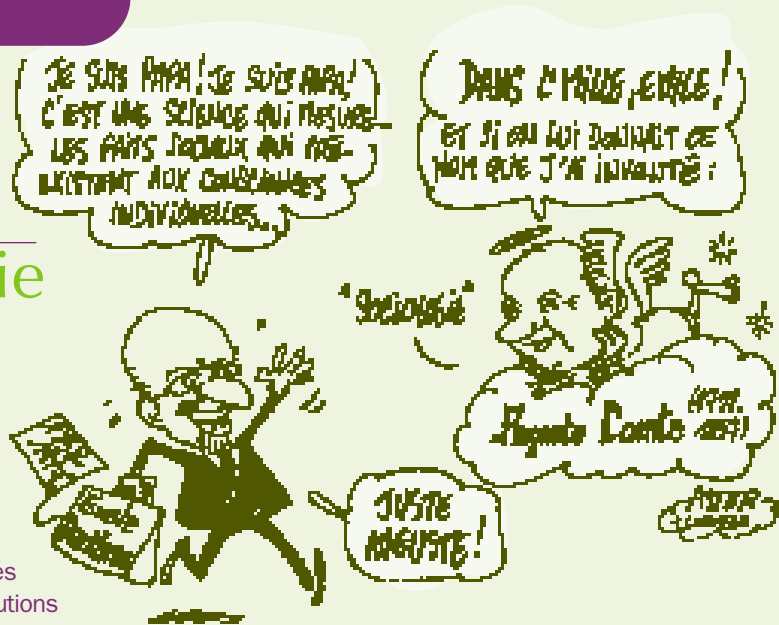 JE SUIS PAPA! JE SUIS PAPA!
C'EST UNE SCIENCE QUI MESURE
LES FAITS SOCIAUX QUI
AUX CONSCIENCES
INDIVIDUELLES.
DANS L'MILLE, EMILE!
ET SI ON LUI DONNAIT CE
NOM QUE J'AI INVENTÉ:
"Sociologie"
ie
Auguste Comte
JUSTE
AUGUSTE!
es
utions